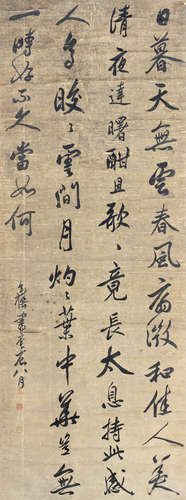 日暮天無雲春風扇微和佳人美
清夜達曙酣且歌〻竟長太息持此感
人多皎〻雲間月灼〻葉中華豈無
一時好不久當如何
書 八月